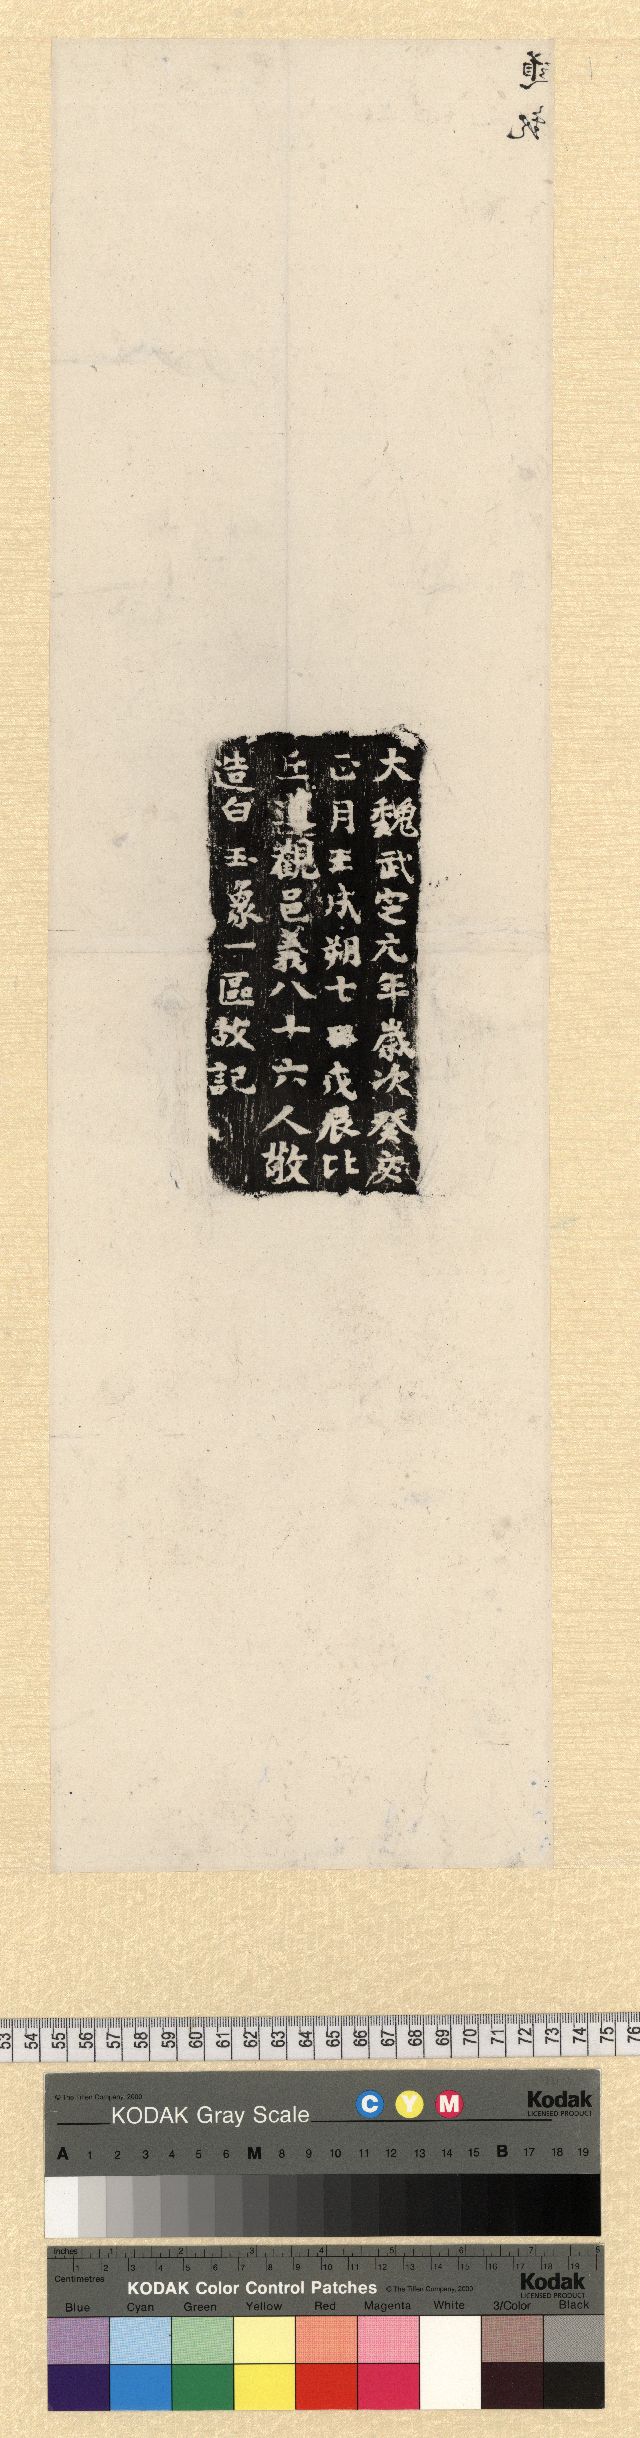 道觀
大魏武定元年歲次癸亥
正月壬戌朔七日戊辰比
丘道觀邑義八十六人敬
造白玉象一區故記
53 54 55 56 57 58 59 60 61 62 63 64 65 66 67 68 69 70 71 72 73 74 75 76
© The Tiffen Company, 2000
KODAK Gray Scale
C Y M
Kodak
LICENSED PRODUCT
A 1 2 3 4 5 6 M 8 9 10 11 12 13 14 15 B 17 18 19
Inches 1 2 3 4 5 6 7 8
Centimetres 1 2 3 4 5 6 7 8 9 10 11 12 13 14 15 16 17 18 19
KODAK Color Control Patches
© The Tiffen Company, 2000
Kodak
LICENSED PRODUCT
Blue Cyan Green Yellow Red Magenta White 3/Color Black